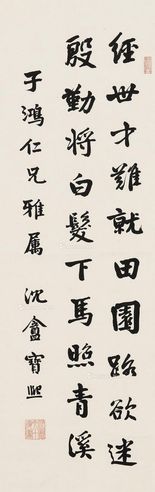 經世才難就田園路欲迷
殷勤將白髮下馬照青溪
子鴻仁兄雅屬 沈盦寶熙